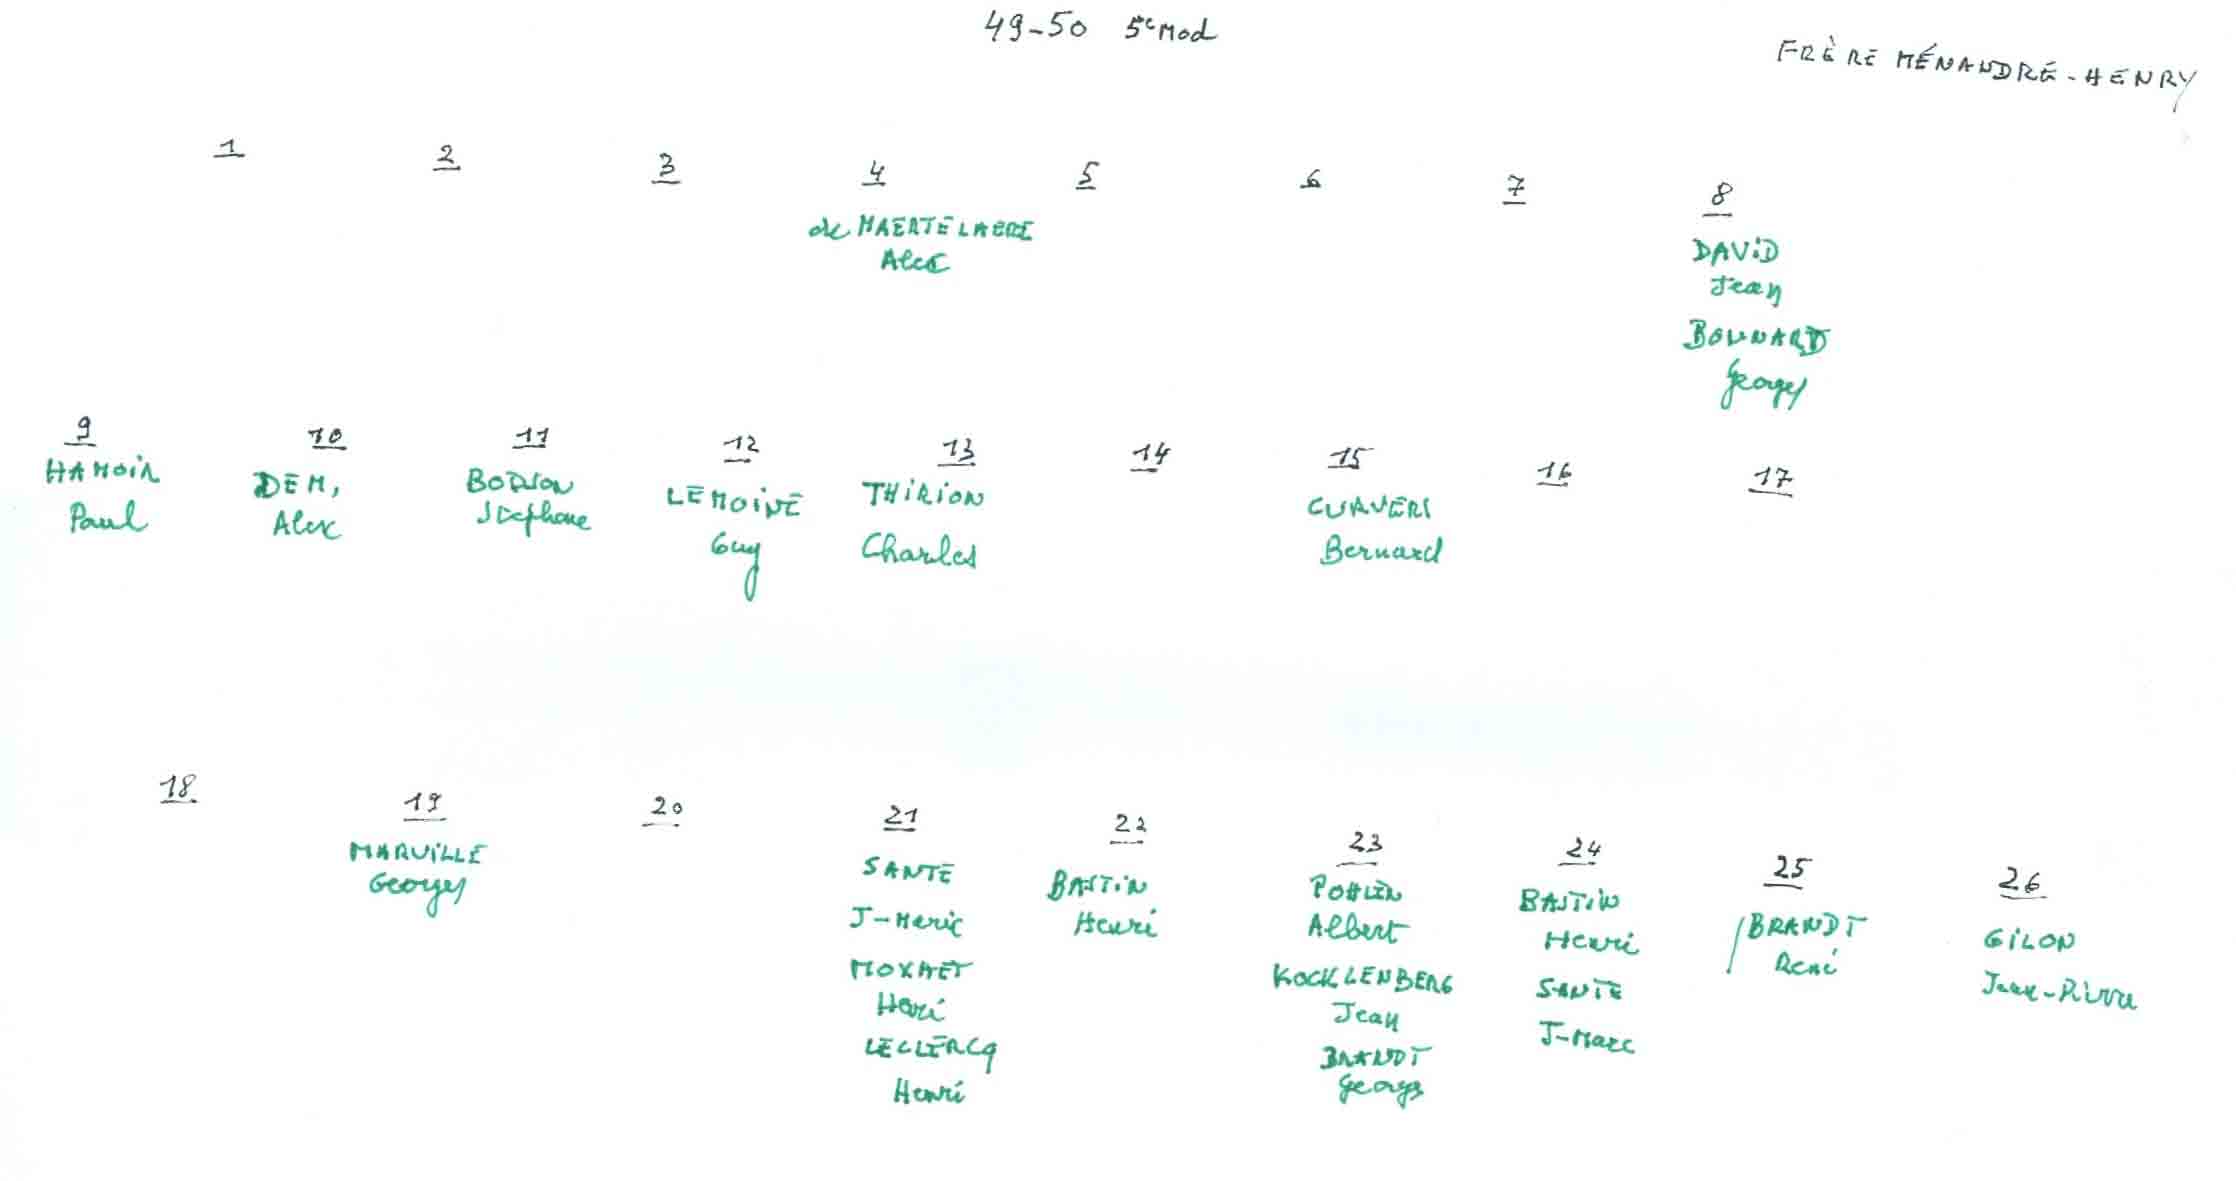 49-50 5e Mod
FRÈRE MÉNANDRE-HENRY
1 2 3 4 5 6 7 8
de MAERTELAERE
Alex
DAViD
Jean
BOUNARD
Georges
9 10 11 12 13 14 15 16 17
HAMOiR
Paul
DEM,
Alex
BODSON
Stéphane
LEMOiNE
Guy
THiRiON
Charles
CURVERS
Bernard
18 19 20 21 22 23 24 25 26
MARViLLE
Georges
SANTE
J-Marie
Henri
LECLERCQ
Henri
BASTiN
Henri
POHLEN
Albert
KOCKLENBERG
Jean
BRANDT
Georges
BASTiN
Henri
SANTE
J-Marc
BRANDT
René
GiLON
Jean-Pierre